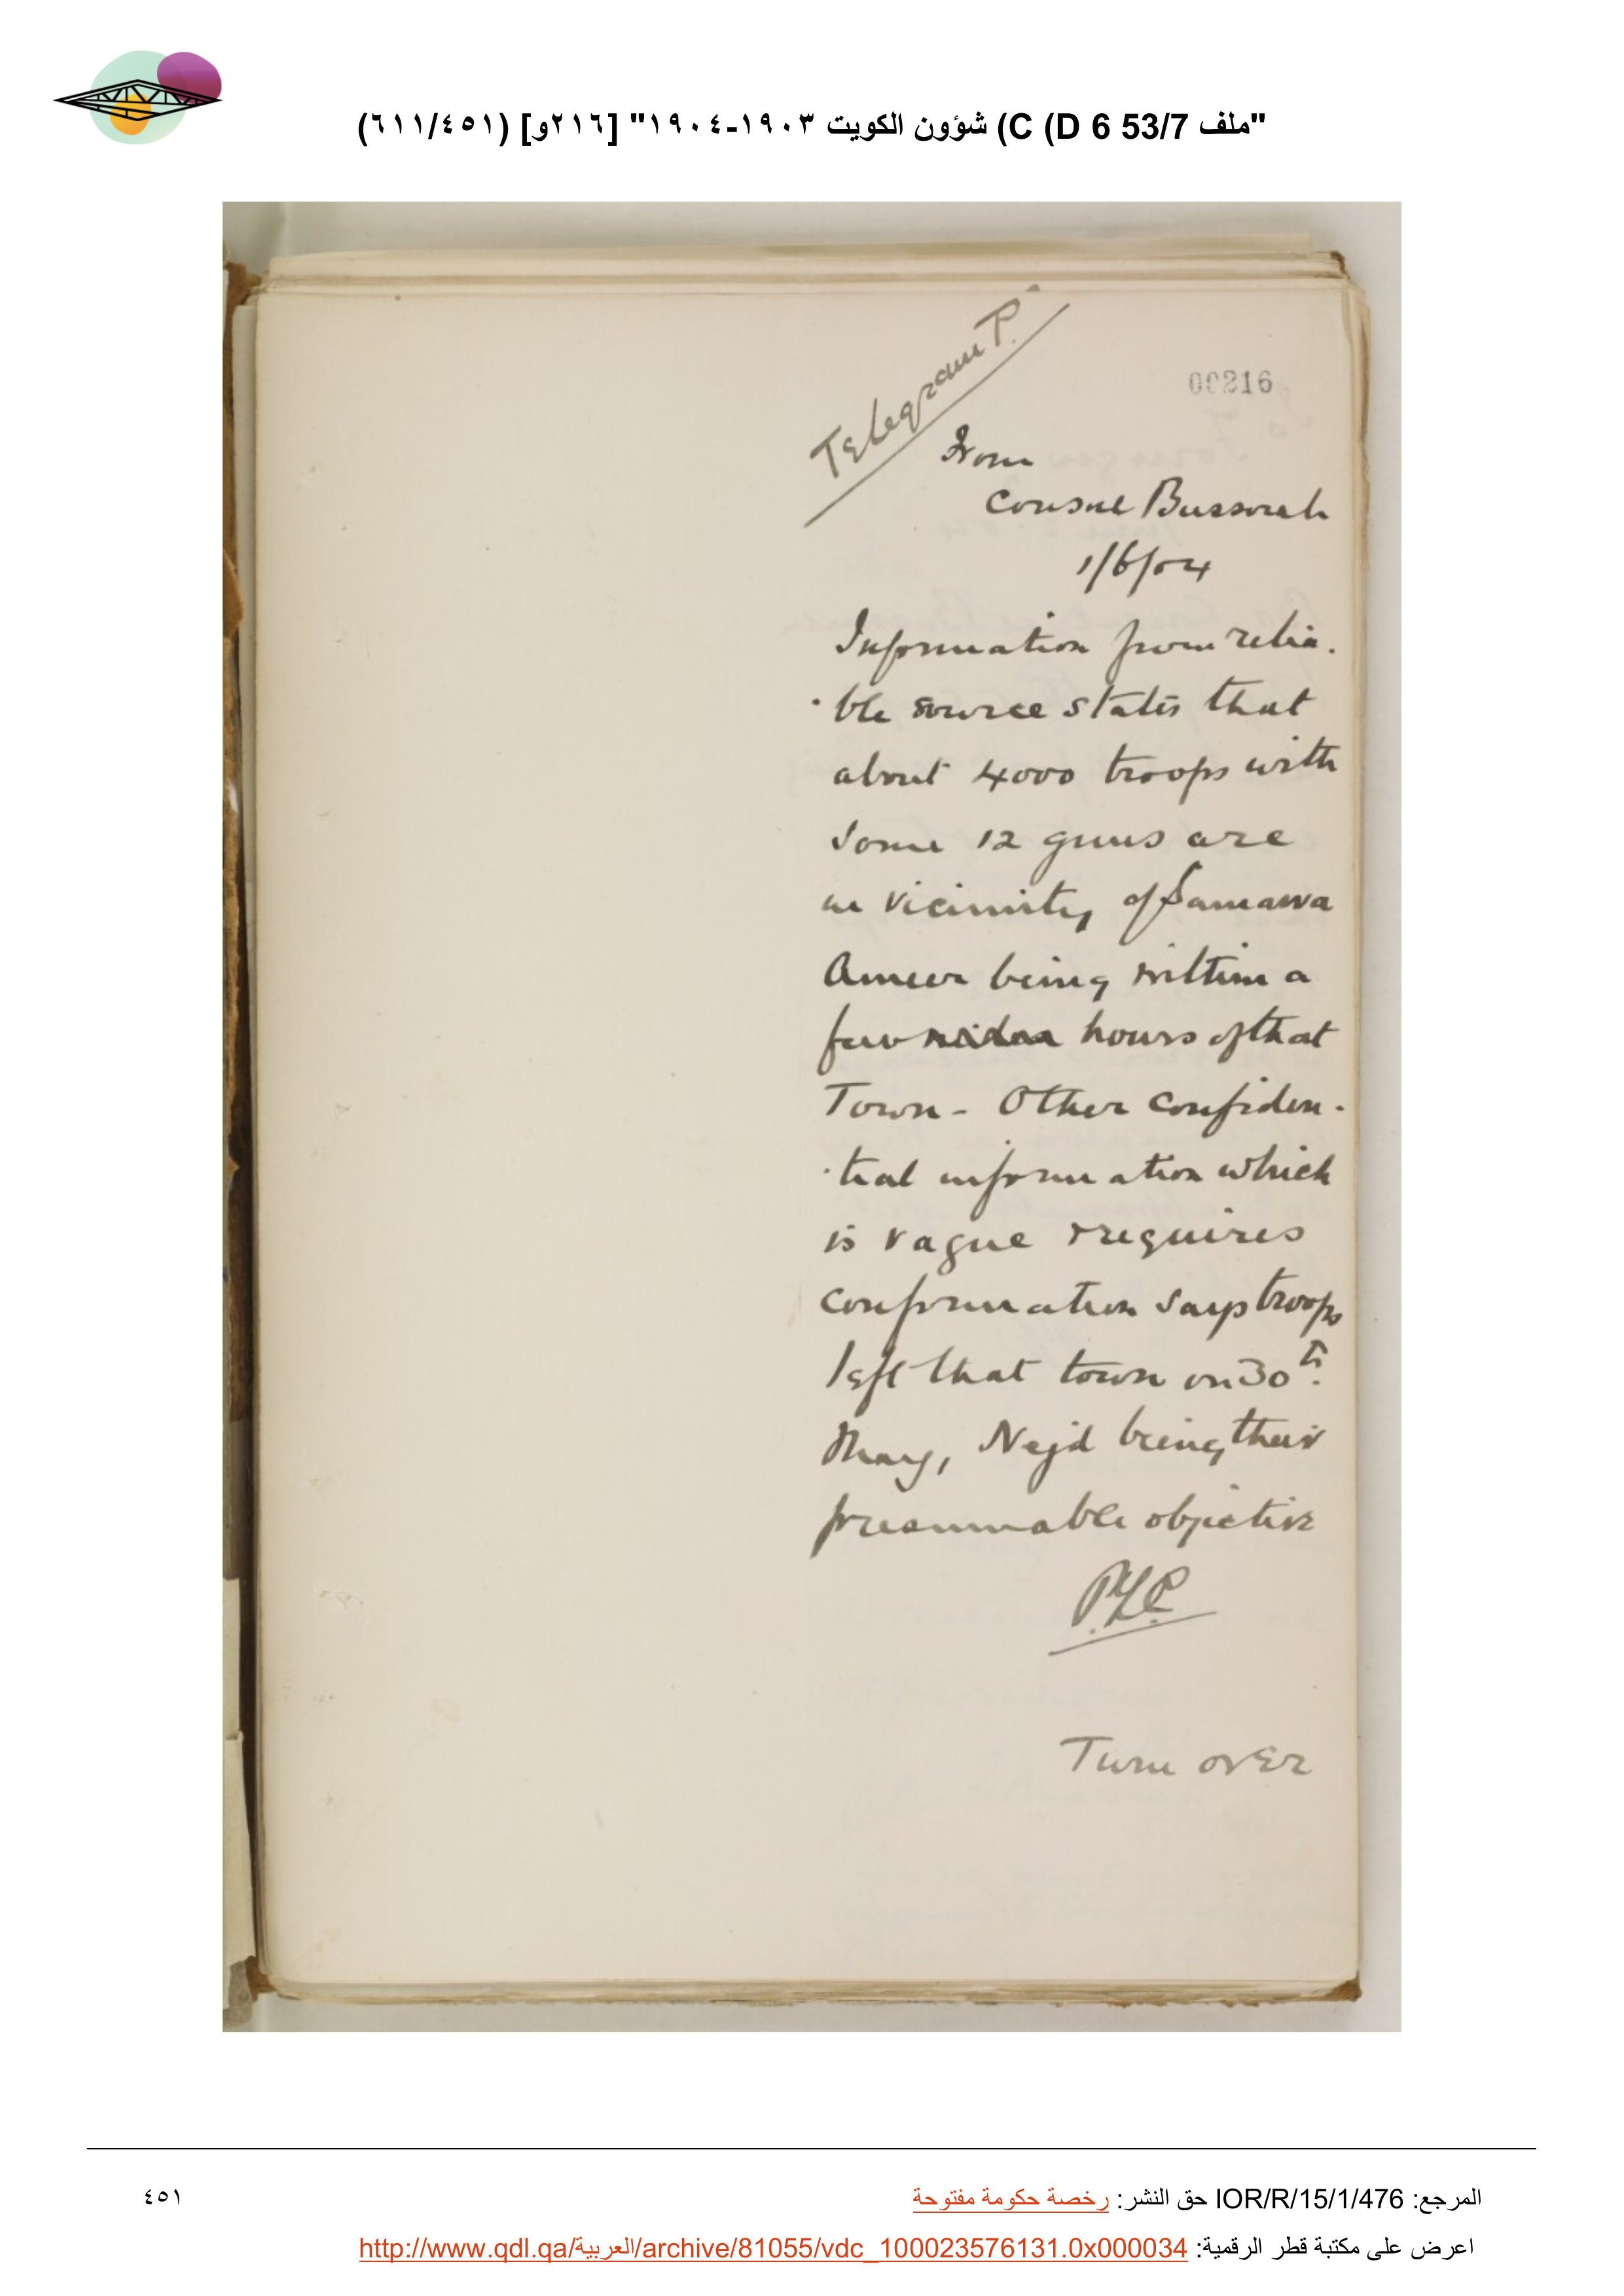 "ملف 53/7 D 6) C) شؤون الكويت ١٩٠٣-١٩٠٤" [٢١٦و] (٦١١/٤٥١)
Telegram P.
00216
From
Consul Bussorah
1/6/04
Information from relia.
.ble source states that
about 4000 troops with
some 12 guns are
in vicinity of Samawa
Ameer being within a
few hours of that
Town - Other confiden.
.tial information which
is vague & requires
confirmation says troops
left that town on 30th.
May, Nejd being their
presumable objective
P.Z.C.
Turn over
المرجع: IOR/R/15/1/476 حق النشر: رخصة حكومة مفتوحة
٤٥١
اعرض على مكتبة قطر الرقمية: http://www.qdl.qa/العربية/archive/81055/vdc_100023576131.0x000034